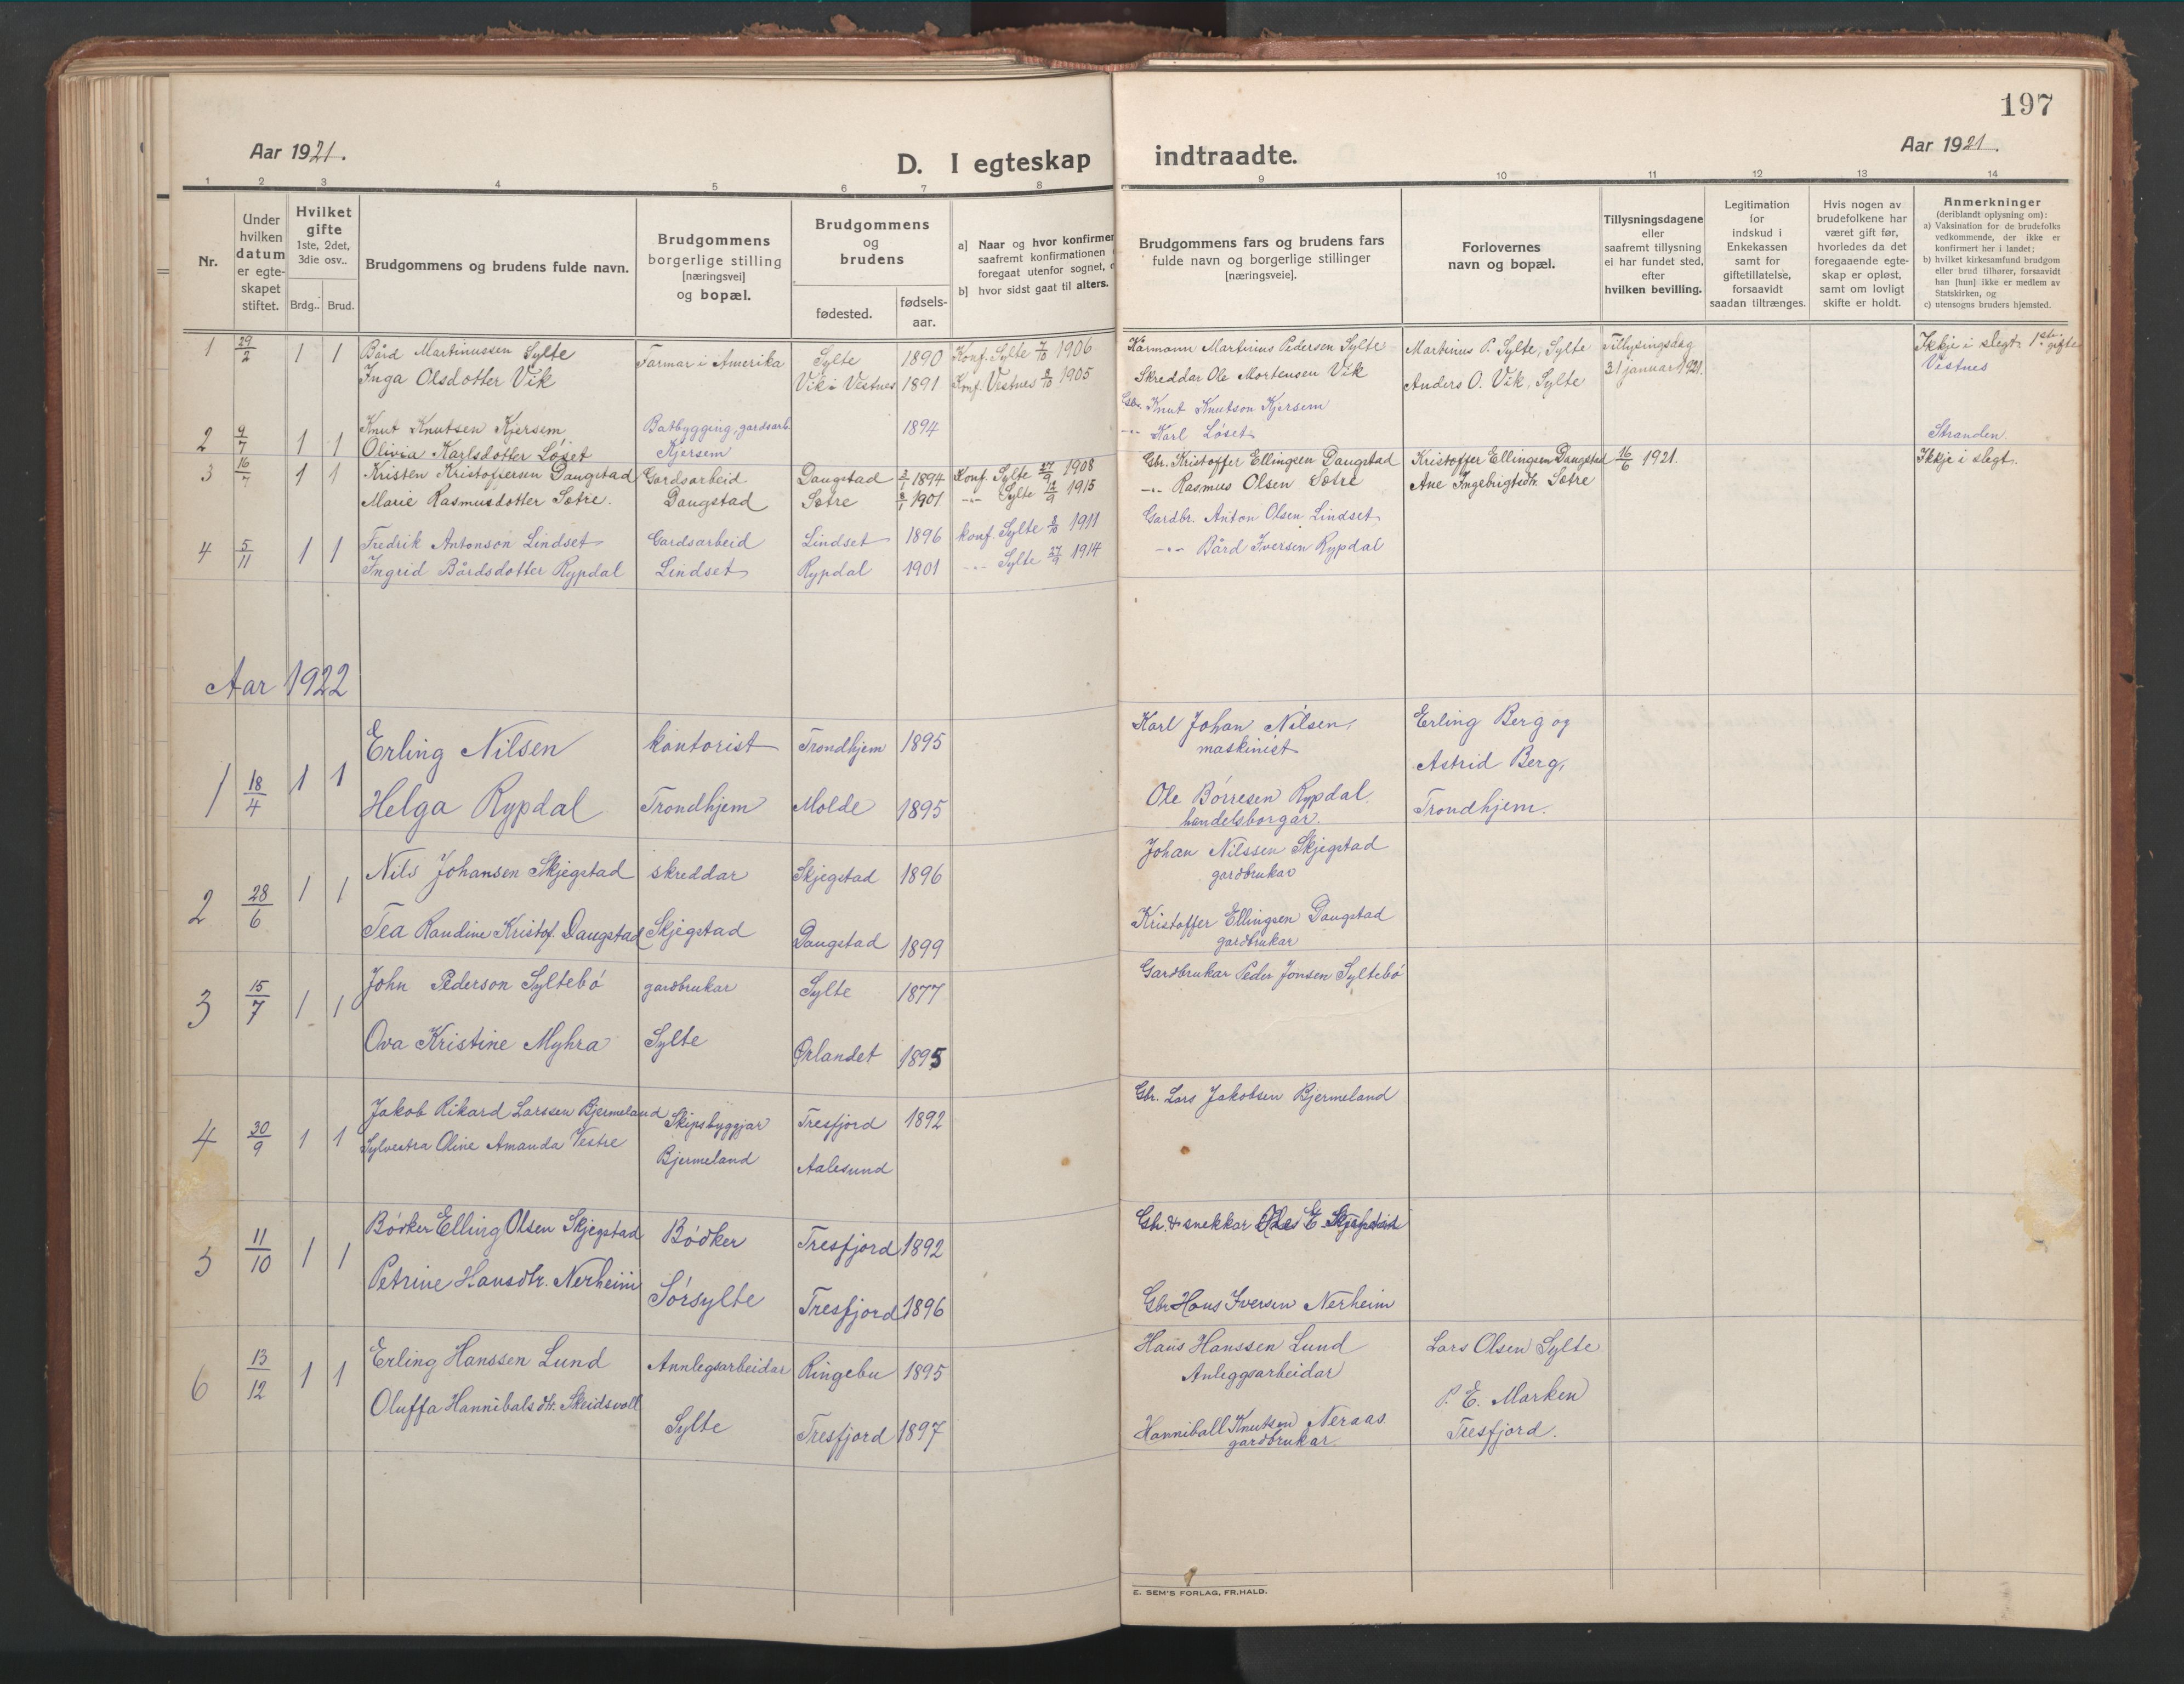 197
Aar 1921.
D. I egteskap indtraadte.
Aar 1921.
1 2 3 4 5 6 7 8 9 10 11 12 13 14
Nr.
Under hvilken datum er egteskapet stiftet.
Hvilket gifte 1ste, 2det, 3die osv..
Brdg.. Brud.
Brudgommens og brudens fulde navn.
Brudgommens borgerlige stilling [næringsvei] og bopæl.
Brudgommens og brudens
fødested.
fødsels-aar.
a] Naar og hvor konfirmer
saafremt konfirmationen
foregaat utenfor sognet,
b] hvor sidst gaat til alters.
Brudgommens fars og brudens fars
fulde navn og borgerlige stillinger
[næringsveie].
Forlovernes
navn og bopæl.
Tillysningsdagene
eller
saafremt tillysning
ei har fundet sted,
efter
hvilken bevilling.
Legitimation
for
indskud i
Enkekassen
samt for
giftetillatelse,
forsaavidt
saadan tiltrænges.
Hvis nogen av
brudefolkene har
været gift før,
hvorledes da det
foregaaende egte-
skap er opløst,
samt om lovligt
skifte er holdt.
Anmerkninger
(deriblandt oplysning om):
a) Vaksination for de brudefolks
vedkommende, der ikke er
konfirmert her i landet;
b) hvilket kirkesamfund brudgom
eller brud tilhører, forsaavidt
han [hun] ikke er medlem av
Statskirken, og
c) utensogns bruders hjemsted.
1 29/2 1 1 Bård Martinussen Sylte Farmar i Amerika Sylte 1890 Konf. Sylte 7/10 1906 Kårmann Martinus Pedersen Sylte Martinus P. Sylte, Sylte Tillysingsdag Ikkje i slegt. 1ste gifte
Inga Olsdotter Vik Vik i Vestnes 1891 Konf. Vestnes 8/10 1905 Skreddar Ole Mortensen Vik Anders O. Vik, Sylte 31 januar 1921. Vestnes
2 9/7 1 1 Knut Knutsen Kjersem Batbygging, gardsarb. 1894 Gbr. Knut Knutson Kjersem
Olivia Karlsdotter Løset Kjersem -"- Karl Løset Stranden.
3 16/7 1 1 Kristen Kristoffersen Daugstad Gardsarbeid Daugstad 2/1 1894 Konf. Sylte 27/9 1908 Gbr. Kristoffer Ellingsen Daugstad Kristoffer Ellingsen Daugstad 16/6 1921. Ikkje i slegt.
Marie Rasmusdotter Sætre. Daugstad Sætre 8/1 1901 -"- Sylte 12/9 1915 -"- Rasmus Olsen Sætre Ane Ingebrigtsdtr. Sætre
4 5/11 1 1 Fredrik Antonson Lindset Gardsarbeid Lindset 1896 konf. Sylte 8/10 1911 Gardbr. Anton Olsen Lindset
Ingrid Bårdsdotter Rypdal Lindset Rypdal 1901 -"- Sylte 27/9 1914 -"- Bård Iversen Rypdal
Aar 1922
1 18/4 1 1 Erling Nilsen kontorist Trondhjem 1895 Karl Johan Nilsen, Erling Berg og
maskinist Astrid Berg,
Helga Rypdal Trondhjem Molde 1895 Ole Børresen Rypdal. Trondhjem.
handelsborgar.
2 28/6 1 1 Nils Johansen Skjegstad skreddar Skjegstad 1896 Johan Nilssen Skjegstad
gardbrukar
Tea Randine Kristof. Daugstad Skjegstad Daugstad 1899 Kristoffer Ellingsen Daugstad
gardbrukar
3 15/7 1 1 John Pederson Syltebø gardbrukar Sylte 1877 Gardbrukar Peder Jonsen Syltebø
Ova Kristine Myhra Sylte Ørlandet 1895
4 30/9 1 1 Jakob Rikard Larssen Bjermeland Skipsbyggjar Tresfjord 1892 Gbr. Lars Jakobsen Bjermeland
Sylvestra Oline Amanda Vestre Bjermeland Aalesund
5 11/10 1 1 Bødker Elling Olsen Skjegstad Bødker Tresfjord 1892 Gbr. & snekkar E. Skjegstad
Petrine Hansdtr. Nerheim Sørsylte Tresfjord 1896 Gbr Hans Iversen Nerheim
6 13/12 1 1 Erling Hanssen Lund Annlegsarbeidar Ringebu 1895 Hans Hanssen Lund Lars Olsen Sylte
Anleggsarbeidar P. E. Marken
Oluffa Hannibalsdtr. Skeidsvoll Sylte Tresfjord 1897 Hanniball Knutsen Neraas Tresfjord.
gardbrukar
E. SEM'S FORLAG, FR.HALD.